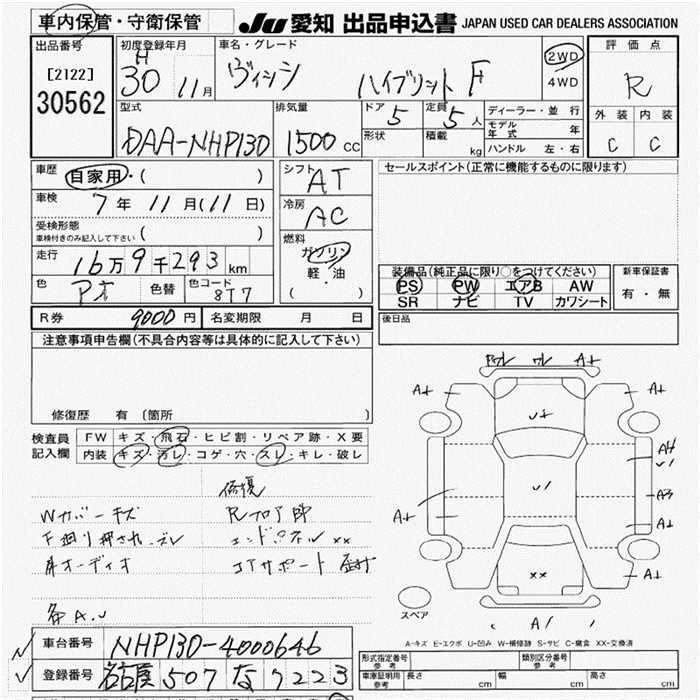 車内保管・守衛保管
JU 愛知 出品申込書 JAPAN USED CAR DEALERS ASSOCIATION
出品番号
[2122]
30562
初度登録年月
H
30 11月
車名・グレード
ハイブリット F
2WD
4WD
評価点
R
外装 内装
C C
型式
DAA-NHP130
排気量
1500 CC
ドア 5
形状
定員 5人
積載 kg
ディーラー・並行
モデル年式 年
ハンドル 左・右
車歴 自家用・( )
車検 7年 11月(11日)
受検形態
車検付きのみ記入して下さい ( )
走行 16万9千293km
色 色替 色コード 8T7
シフト AT
冷房 AC
燃料
ガソリン
軽・油
( )
セールスポイント(正常に機能するものに限ります)
装備品(純正品に限り○をつけてください)
PS PW エアB AW
SR ナビ TV カワシート
新車保証書
有・無
R券 9000円 名変期限 月 日
後日品
注意事項申告欄(不具合内容等は具体的に記入して下さい)
修復歴 有 [箇所 ]
検査員
記入欄
FW キズ・飛石・ヒビ割・リペア跡・X要
内装 キズ・汚レ・コゲ・穴・スレ・キレ・破レ
修復
Wカバーキズ
Rフロア
エンドパネル xx
下廻り押されズレ
オーディオ
サポート
各A.U
A+ A+
U+
A+
U1
U1
A3
A+ A+
xx A+
スペア
A1
A-キズ E-エクボ U-凹み W-補修跡 S-サビ C-腐食 XX-交換済
車台番号 NHP130-4000646
登録番号 名古屋 507 な 7223
形式指定番号
参考
類別区分番号
参考
車庫証明用
参考
長さ cm 幅 cm 高さ cm